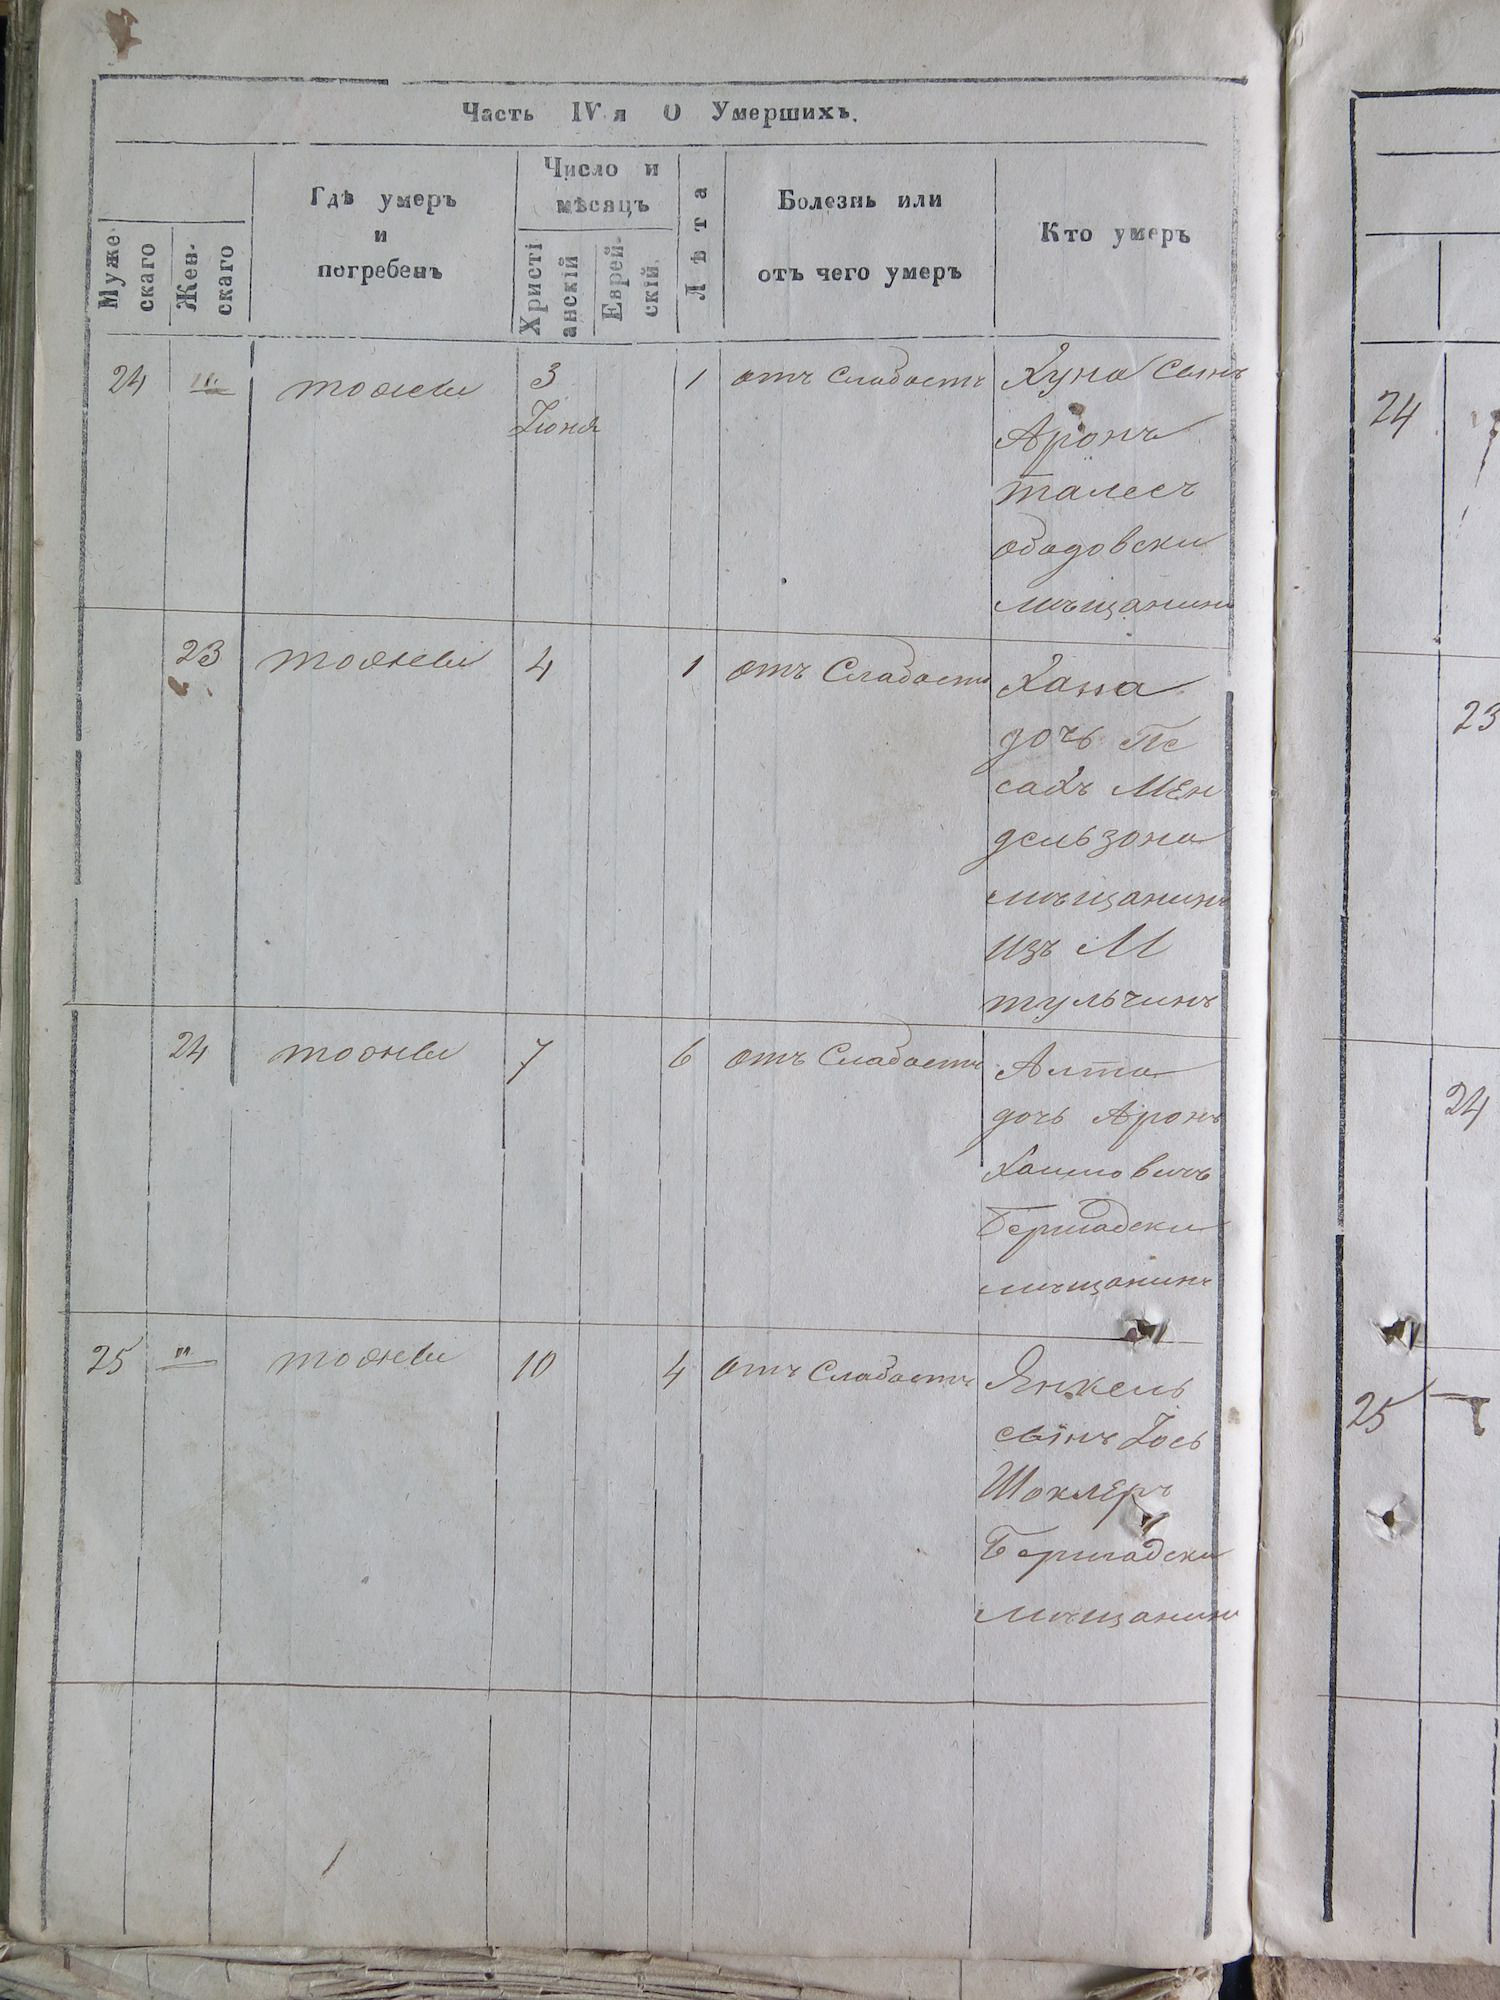 Часть IV я О Умершихъ.
Муже-
скаго
Жен-
скаго
Гдѣ умеръ
и
погребенъ
Число и
мѣсяцъ
Христі
анскій
Еврей-
скій
Лѣта
Болезнь или
отъ чего умеръ
Кто умеръ
24 " тоже 3 1 отъ слабости Хуна сынъ
Іюня Аронъ
талесъ
ободовски
мѣщанинъ
23 тоже 4 1 отъ Слабости Хана
дочь Пе
сахъ Мен
дельзона
мѣщанинъ
изъ М
тульчинъ
24 тоже 7 6 отъ Слабости Алта
дочь Аронъ
Хаимовичъ
Бершадски
мѣщанинъ
25 " тоже 10 4 отъ Слабости Янкель
сынъ Іось
Шоклеръ
Бершадски
мѣщанинъ
24
23
24
25